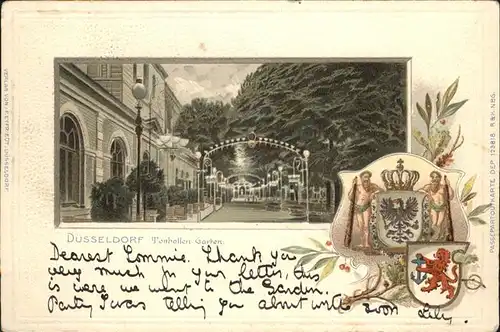 DÜSSELDORF Tonhallen-Garten.
Dearest Tommie. Thank you
very much for your letter, this
is where we went to the Garden
Party I was telling you about write soon Lily.
VERLAG VON
DÜSSELDORF.
PASSEPARTOUTKARTE DEP. 123818 R & K. NBG.